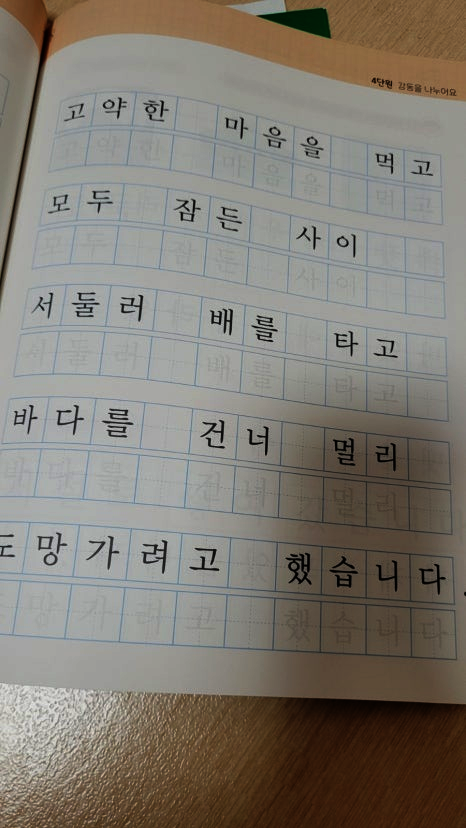 4단원 감동을 나누어요
고약한 마음을 먹고
고약한 마음을 먹고
모두 잠든 사이
모두 잠든 사이
서둘러 배를 타고
서둘러 배를 타고
바다를 건너 멀리
바다를 건너 멀리
도망가려고 했습니다.
망가려고 했습니다